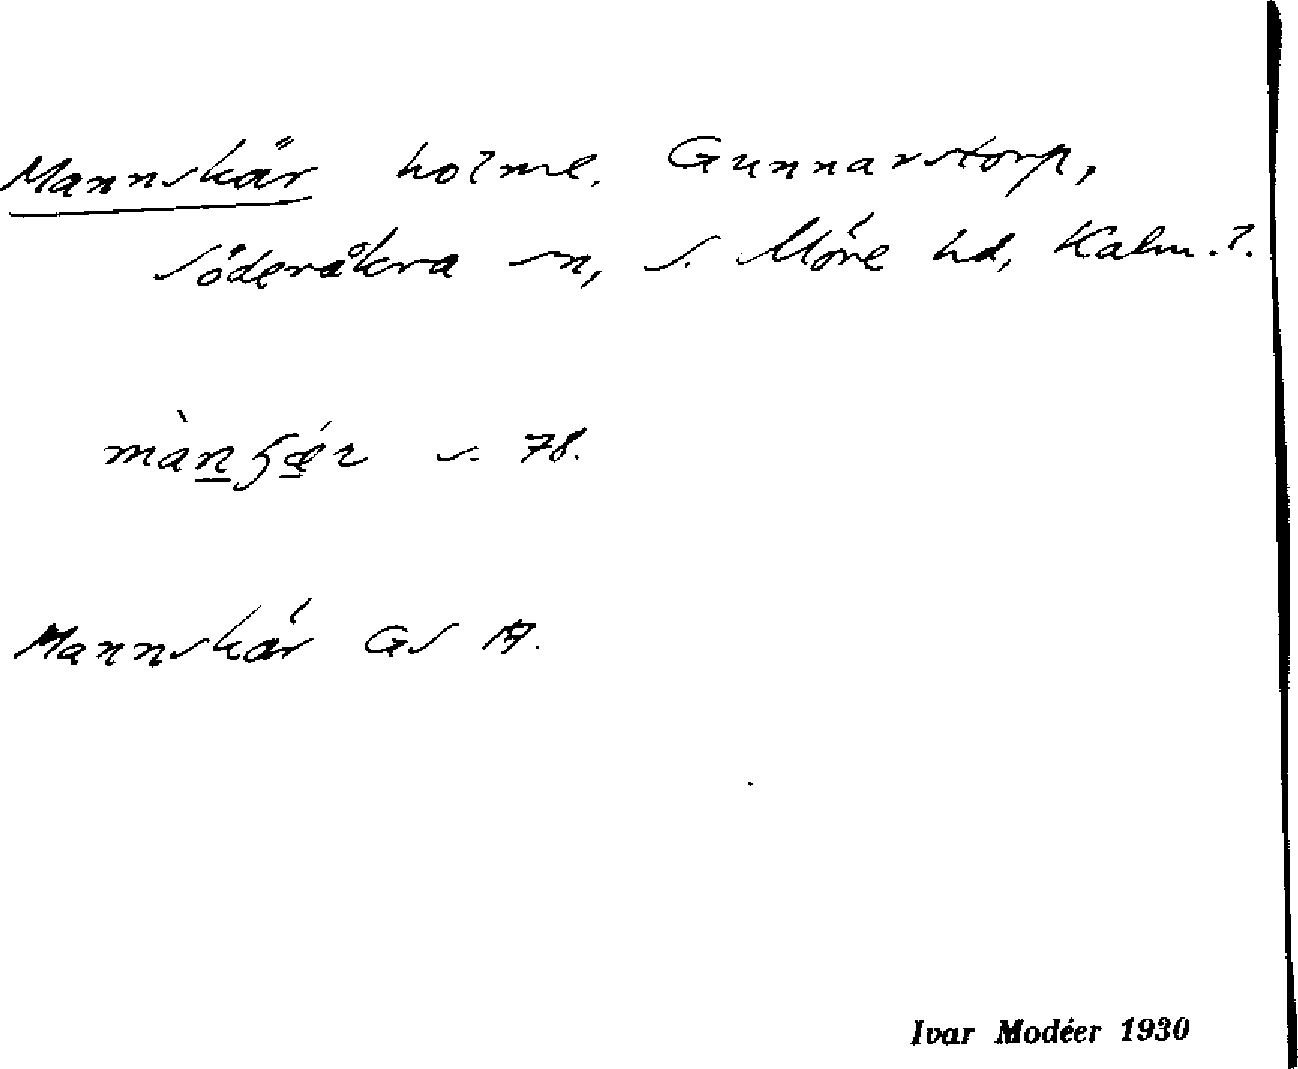 Mannskär holme, Gunnarstorp,
Söderåkra sn, S. Möre hd, Kalm. l.
s. 78.
Mannskär GS
Ivar Modéer 1930